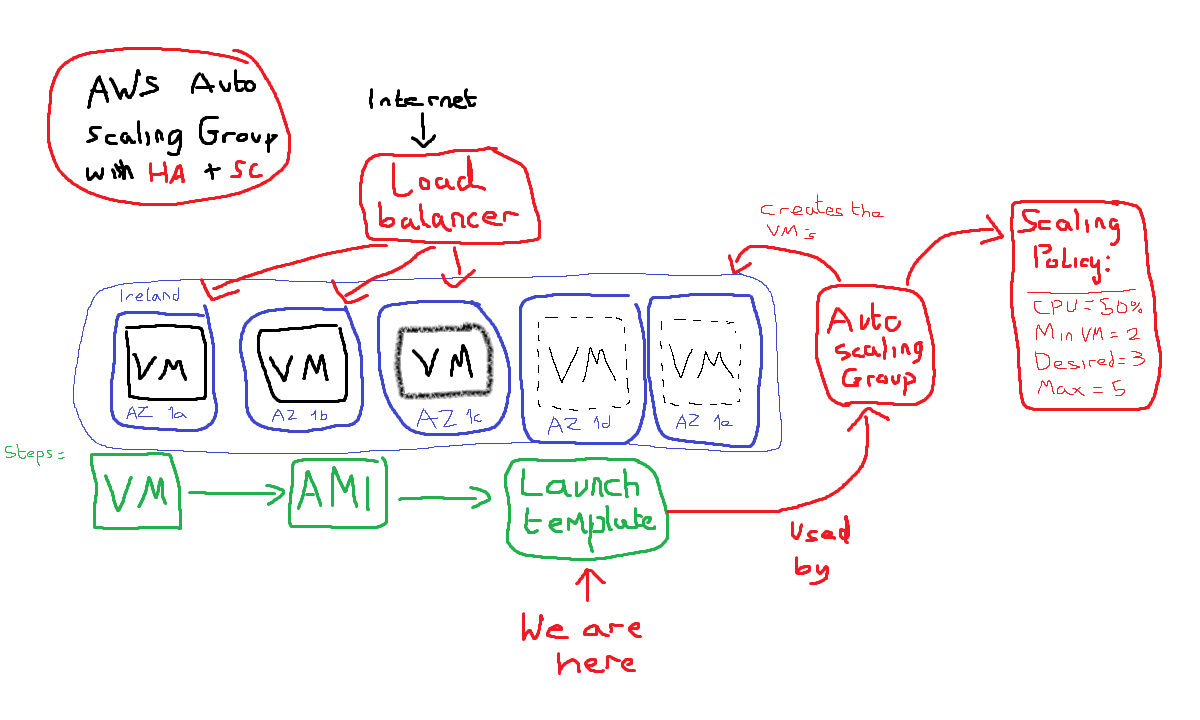 AWS Auto
Scaling Group
with HA + SC
Internet
Load
balancer
creates the
VMs
Scaling
Policy:
CPU = 50%
Min VM = 2
Desired = 3
Max = 5
Ireland
VM
AZ 1a
VM
AZ 1b
VM
AZ 1c
VM
AZ 1d
VM
AZ 1e
Auto
Scaling
Group
Steps:
VM
AMI
Launch
template
Used
by
We are
here